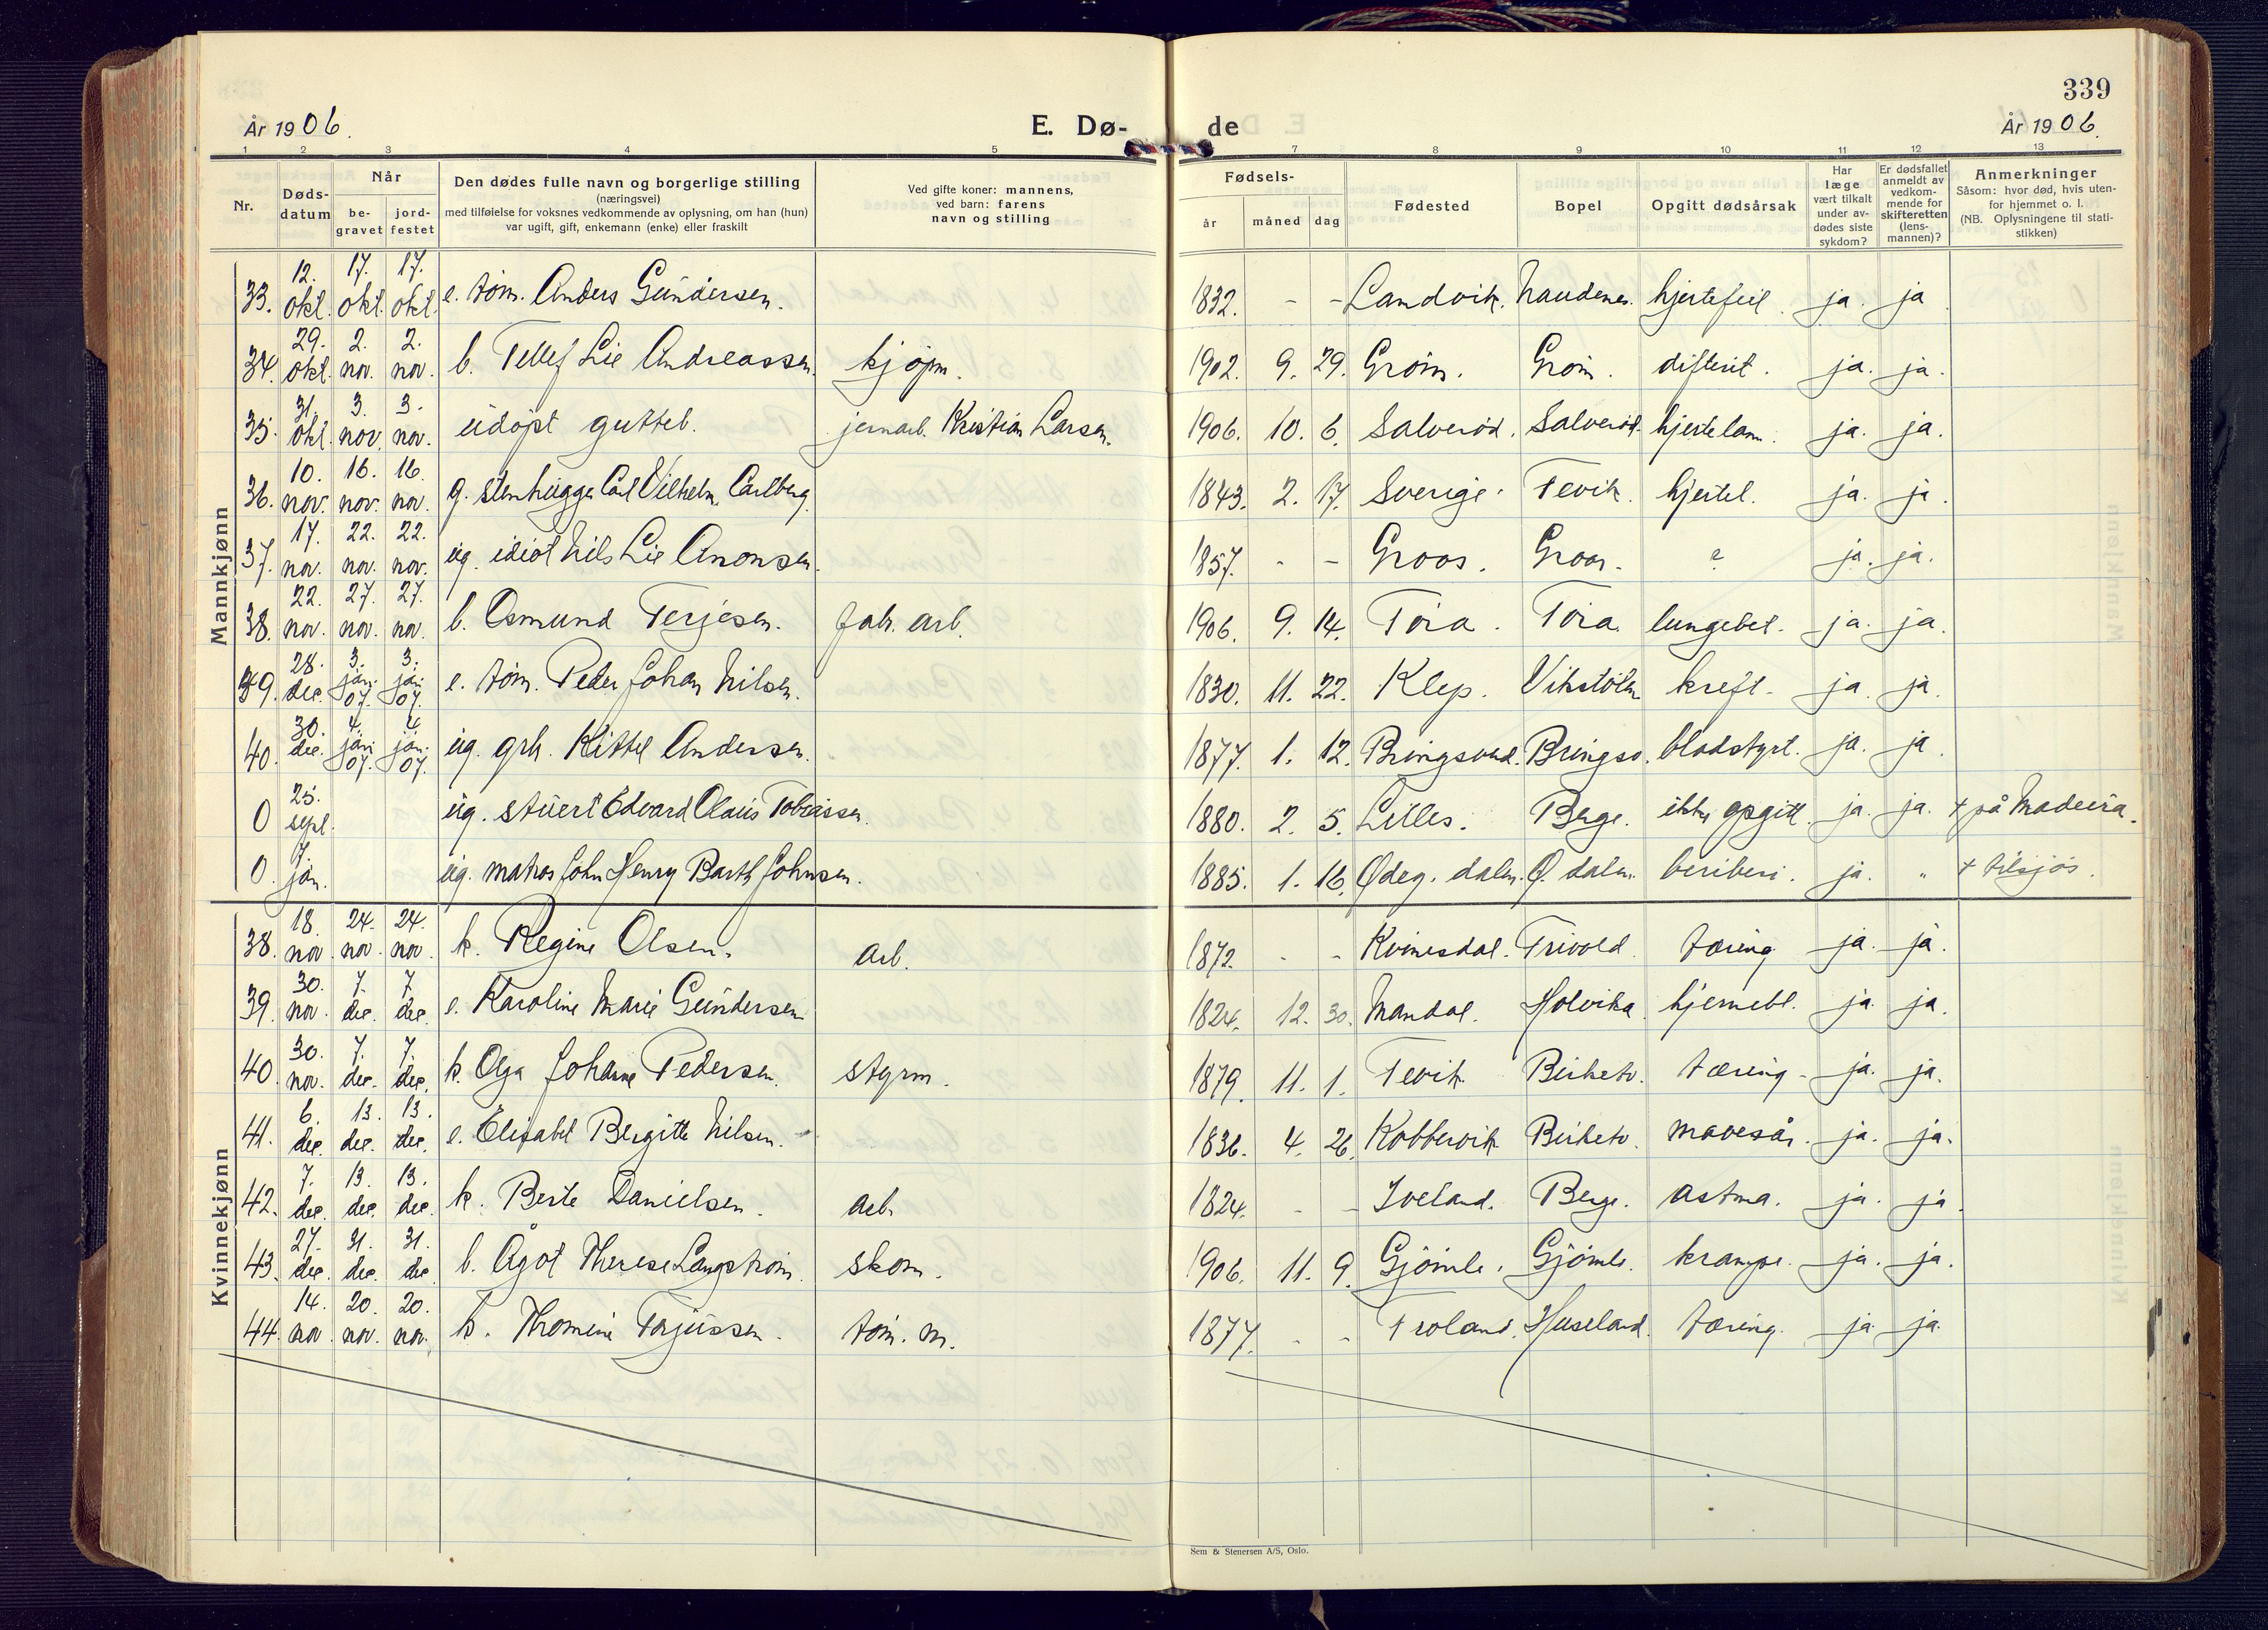 339
År 1906.
E. Dø-
de
År 1906.
1 2 3 4 5
7 8 9 10 11 12 13
Nr.
Døds-
datum
Når
be-
gravet
jord-
festet
Den dødes fulle navn og borgerlige stilling
(næringsvei)
med tilføielse for voksnes vedkommende av oplysning, om han (hun)
var ugift, gift, enkemann (enke) eller fraskilt
Ved gifte koner: mannens,
ved barn: farens
navn og stilling
Fødsels-
år
måned
dag
Fødested
Bopel
Opgitt dødsårsak
Har
læge
vært tilkalt
under av-
dødes siste
sykdom?
Er dødsfallet
anmeldt av
vedkom-
mende for
skifteretten
(lens-
mannen)?
Anmerkninger
Såsom: hvor død, hvis uten-
for hjemmet o. l.
(NB. Oplysningene til stati-
stikken)
Mannkjønn
33. 12. okt. 17. okt. 17. okt. e. tøm. Anders Gundersen. 1832. - - Landvik. Naudenes. hjertefeil. ja. ja
34. 29. okt. 2. nov. 2. nov. b. Tellef Lie Andreassen. kjøpm. 1902. 9. 29. Grøm. Grøm. difterit. ja. ja.
35. 31. okt. 3. nov. 3. nov. udøpt gutteb. jernarb. Kristian Larsen. 1906. 10. 6. Salverød. Salverød. hjertelam. ja. ja.
36. 10. nov. 16. nov. 16. nov. g. stenhugger Carl Vilhelm Carlberg. 1843. 2. 17. Sverige. Tevik. hjertel. ja. ja.
37. 17. nov. 22. nov. 22. nov. ug. idiot Nils Lie Anonsen. 1857. - - Groos. Groos. ja. ja.
38. 22. nov. 27. nov. 27. nov. b. Osmund Terjesen. fabr. arb. 1906. 9. 14. Tøra. Tøra. lungebet. ja. ja.
39. 28. dec. 3. jan. 07. 3. jan. 07. e. tøm. Peder Johan Nilsen. 1830. 11. 22. Klep. Vikstølen kreft. ja. ja.
40. 30. dec. 4. jan. 07. 4. jan. 07. ug. grb. Kittel Andersen. 1877. 1. 12. Bringsverd. Bringsv. blodstyrt. ja. ja.
0 25. sept. ug. stuert Edvard Olaus Tobiassen. 1880. 2. 5. Lilles. Berge. ikke opgitt. ja. ja. + på Madeira.
0. 7. jan. ug. matros John Henry Barth Johnsen. 1885. 1. 16. Ødeg. dalen. Ø. dalen. beriberi. ja. " + tilsjøs.
Kvinnekjønn
38. 18. nov. 24. nov. 24. nov. k. Regine Olsen. arb. 1872. - - Kvinesdal. Trivold. tæring ja. ja.
39. 30. nov. 7. dec. 7. dec. e. Karoline Marie Gundersen 1824. 12. 30. Mandal. Holvika. hjernebl. ja. ja.
40. 30. nov. 7. dec. 7. dec. k. Olga Johanne Pedersen. styrm. 1879. 11. 1. Tevik. Birketv. tæring. ja. ja.
41. 6. dec. 13. dec. 13. dec. e. Elisabet Bergitte Nilsen. 1836. 4. 26. Kobbervik Birketv. mavesår. ja. ja.
42. 7. dec. 13. dec. 13. dec. k. Berte Danielsen. arb. 1824. - - Iveland. Berge. astma. ja. ja.
43. 27. dec. 31. dec. 31. dec. b. Ågot Therese Langstrøm. skom. 1906. 11. 9. Gjømle. Gjømle. krampe. ja. ja.
44. 14. nov. 20. nov. 20. nov. k. Thomine Terjussen. tøm. m. 1877. - - Froland. Huseland. tæring. ja ja.
Sem & Stenersen A/S, Oslo.